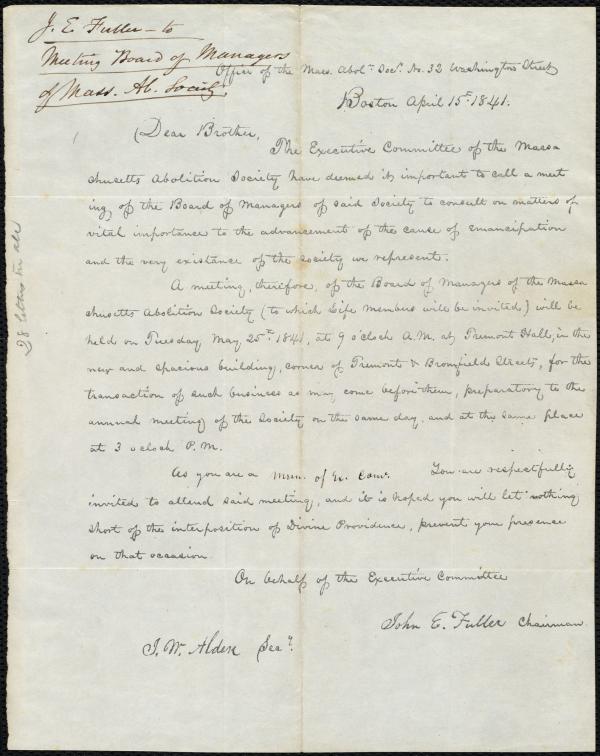 J. E. Fuller – to
Meeting Board of Managers
of Mass. Ab. Society
Office of the Mass. Abol.n Soc.y No. 32 Washington Street
Boston April 15th 1841.
Dear Brother,
The Executive Committee of the Massa
chusetts Abolition Society have deemed it important to call a meet
ing of the Board of Managers of said Society to consult on matters of
vital importance to the advancement of the cause of emancipation
and the very existance of the society we represent.
A meeting, therefore, of the Board of Managers of the Massa
chusetts Abolition Society (to which Life Members will be invited) will be
held on Tuesday May 25th 1841, at 9 o'clock A.M. at Tremont Hall, in the
new and spacious building, corner of Tremont & Bromfield Streets, for the
transaction of such business as may come before them, preparatory to the
annual meeting of the Society on the same day, and at the same place
at 3 o'clock P.M.
As you are a Mem. of Ex. Com. You are respectfully
invited to attend said meeting, and it is hoped you will let nothing
short of the interposition of Divine Providence, prevent your presence
on that occasion.
On behalf of the Executive Committee
John E. Fuller Chairman
J. W. Alden Sec.y
28 letters in all